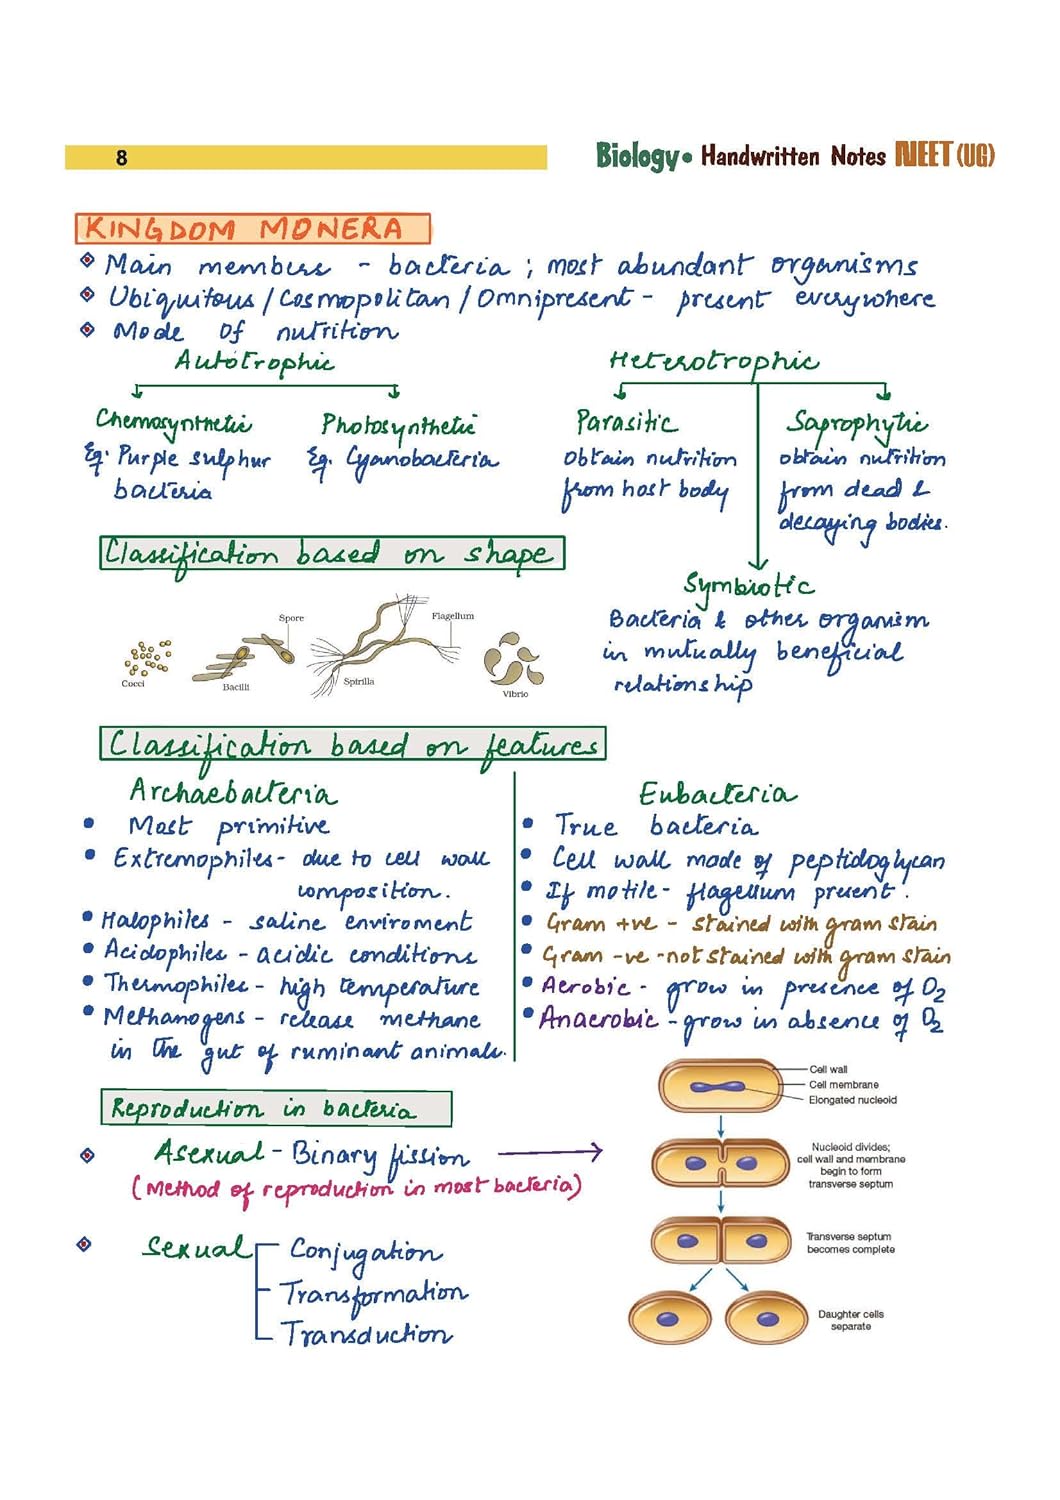 8
Biology • Handwritten Notes NEET (UG)
KINGDOM MONERA
Main members - bacteria ; most abundant organisms
Ubiquitous / Cosmopolitan / Omnipresent - present everywhere
Mode of nutrition
Autotrophic
Chemosynthetic
Eg. Purple sulphur
bacteria
Photosynthetic
Eg. Cyanobacteria
Heterotrophic
Parasitic
obtain nutrition
from host body
Saprophytic
obtain nutrition
from dead &
decaying bodies.
Symbiotic
Bacteria & other organism
in mutually beneficial
relationship
Classification based on shape
Cocci
Spore
Bacilli
Spirilla
Flagellum
Vibrio
Classification based on features
Archaebacteria
• Most primitive
• Extremophiles - due to cell wall
composition.
• Halophiles - saline enviroment
• Acidophiles - acidic conditions
• Thermophiles - high temperature
• Methanogens - release methane
in the gut of ruminant animals.
Eubacteria
• True bacteria
• Cell wall made of peptidoglycan
• If motile - flagellum present.
• Gram +ve - stained with gram stain
• Gram -ve - not stained with gram stain
• Aerobic - grow in presence of O2
• Anaerobic - grow in absence of O2
Reproduction in bacteria
Asexual - Binary fission
(Method of reproduction in most bacteria)
Sexual
Conjugation
Transformation
Transduction
Cell wall
Cell membrane
Elongated nucleoid
Nucleoid divides;
cell wall and membrane
begin to form
transverse septum
Transverse septum
becomes complete
Daughter cells
separate